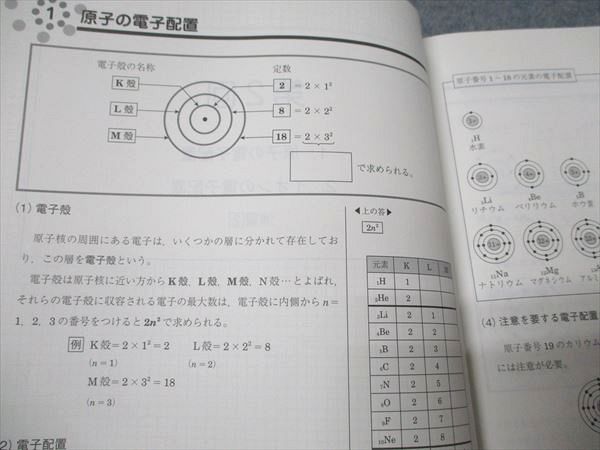 1 原子の電子配置
電子殻の名称 定数
K 殻 2 = 2 × 1²
L 殻 8 = 2 × 2²
M 殻 18 = 2 × 3²
で求められる。
(1) 電子殻
原子核の周囲にある電子は、いくつかの層に分かれて存在してお
り、この層を電子殻という。
電子殻は原子核に近い方からK殻、L殻、M殻、N殻…とよばれ、
それらの電子殻に収容される電子の最大数は、電子殻に内側からn=
1、2、3の番号をつけると2n²で求められる。
例 K殻=2×1²=2 L殻=2×2²=8
(n=1) (n=2)
M殻=2×3²=18
(n=3)
2) 電子配置
◀上の答▶
2n²
元素 K L
₁H 1
₂He 2
₃Li 2 1
₄Be 2 2
₅B 2 3
₆C 2 4
₇N 2 5
₈O 2 6
₉F 2 7
₁₀Ne 2 8
原子番号1~18の元素の電子配置
₁H
水素
₃Li ₄Be ₅B
リチウム ベリリウム ホウ素
₁₁Na ₁₂Mg
ナトリウム マグネシウム アルミ
(4) 注意を要する電子配置
原子番号19のカリウム
には注意が必要。